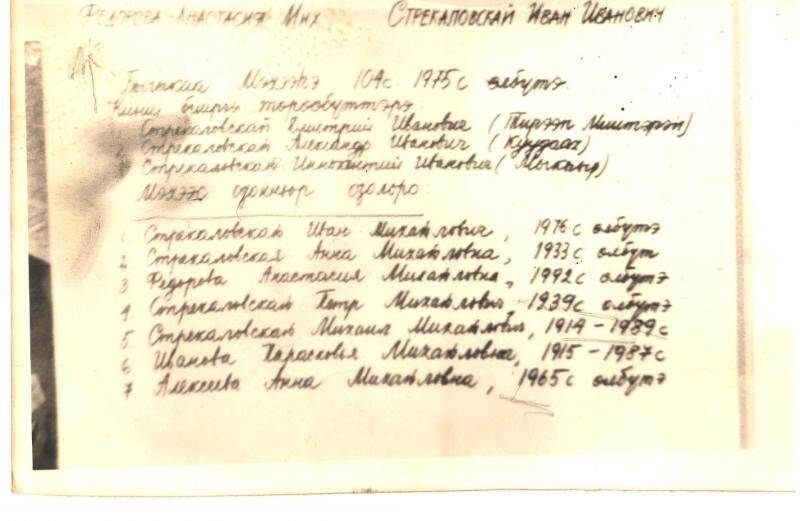 Федорова Анастасия Мих Стрекаловскай Иван Иванович
Мэхээлэ 104 с 1975 с өлбүтэ
Кини бииргэ төрөөбүттэрэ
Стрекаловскай Дмитрий Иванович (Миитэрэй)
Стрекаловскай Александр Иванович (Куудаах)
Стрекаловскай Иннокентий Иванович (
Мэхээс оҕонньор оҕолоро
1 Стрекаловскай Иван Михайлович, 1976 с өлбүтэ
2 Стрекаловская Анна Михайловна, 1933 с өлбүт
3 Федорова Анастасия Михайловна, 1992 с өлбүтэ
4. Стрекаловскай Петр Михайлович, 1939 с өлбүтэ
5. Стрекаловскай Михаил Михайлович, 1914 – 1989 с
6 Иванова Парасковья Михайловна, 1915 – 1987 с
7 Алексеева Анна Михайловна, 1965 с өлбүтэ